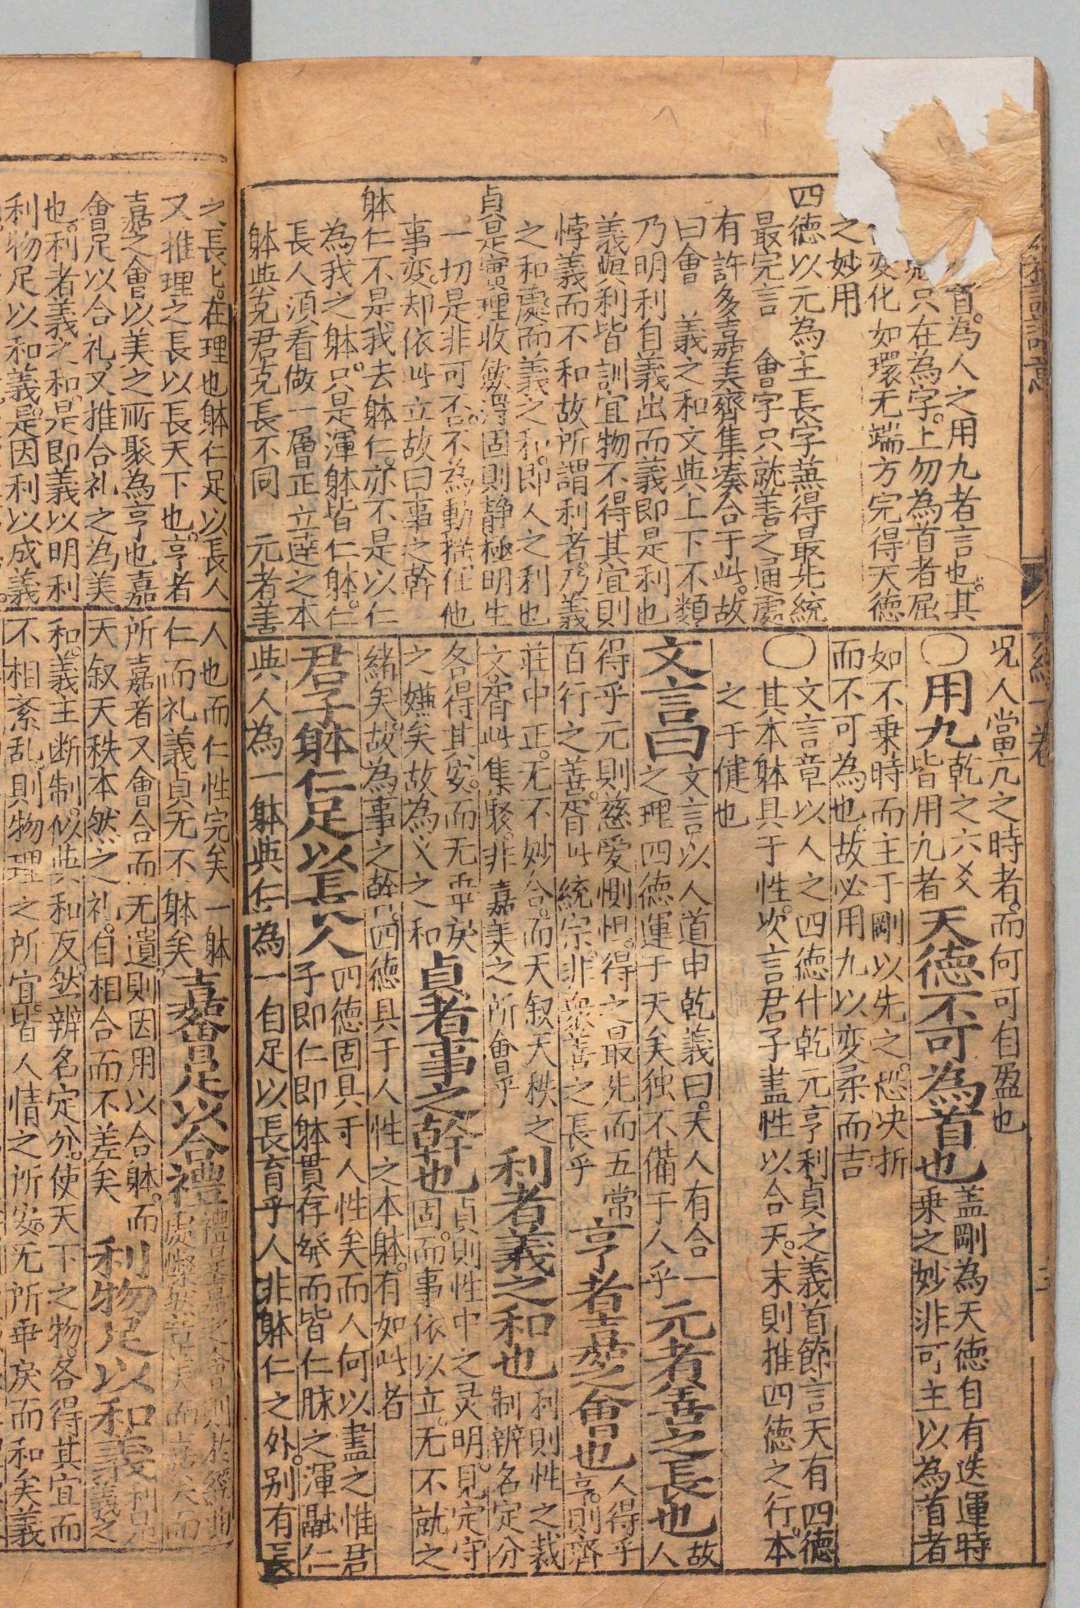 首為人之用九者言也其
只在為字上勿為首者屈
変化如環无端方完得天德
之妙用
四德以元為主長字兼得最先統
最完言 會字只就善之通處
有許多嘉美齊集湊合于此故
曰會 義之和文與上下不類
乃明利自義出而義即是利也
義與利皆訓宜物不得其宜則
悖義而不和故所謂利者乃義
之和處而義之和即人之利也
貞是實理收歛淂固則静極明生
一切是非可否不為動揺任他
事変却依此立故曰事之幹
躰仁不是我去躰仁亦不是以仁
為我之躰只是渾躰皆仁躰仁
長人須看做一層正立達之本
躰與克君克長不同 元者善
况人當亢之時者而何可自盈也
〇用九 乾之六爻皆用九者 天德不可為首也 盖剛為天德自有迭運時乗之妙非可主以為首者
如不乗時而主于剛以先之恐决折
而不可為也故必用九以変柔而吉
〇文言章以人之四德什乾元亨利貞之義首節言天有四德
其本躰具于性次言君子盡性以合天末則推四德之行本
之于健也
文言曰 文言以人道申乾義曰天人有合一之理四德運于天矣独不備于人乎 元者善之長也 故人
得乎元則慈愛惻怛得之最先而五常百行之善胥此統宗非衆善之長乎 亨者嘉之會也 人得乎亨則齊
莊中正无不妙合而天叙天秩之文胥此集聚非嘉美之所會乎 利者義之和也 利則性之裁制辨名定分
各得其安而无乖戾之嫌矣故為义之和 貞者事之幹也 貞則性中之灵明見定守固而事依以立无不就之
緒矣故為事之幹四德具于人性之本躰有如此者
君子躰仁足以長人 四德固具于人性矣而人何以盡之惟君子即仁即躰貫存発而皆仁脉之渾融仁
與人為一躰與仁為一自足以長育乎人非躰仁之外别有長
之長比在理也躰仁足以長人
又推理之長以長天下也亨者
嘉之會以美之所聚為亨也嘉
會足以合礼又推合礼之為美
也利者義之和是即義以明利
利物足以和義是因利以成義
人也而仁性完矣一躰仁而礼義貞无不躰矣 嘉會足以合禮
所嘉者又會合而无遺則因用以合躰而天叙天秩本然之礼自相合而不差矣 利物足以和義
和義主断制似與和反然辨名定分使天下之物各得其宜而
不相紊乱則物理之所宜皆人情之所安无所乖戾而和矣義